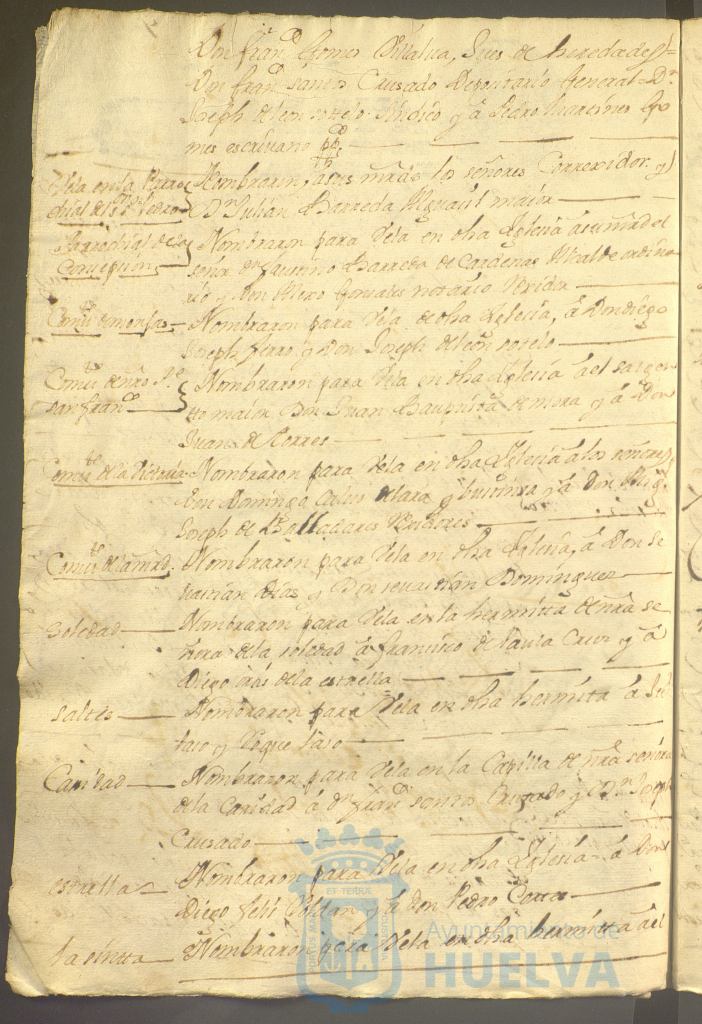 Don fran.co Gomes Villalua, Jues de heredades
Don fran.co Crusado Depositario General= D.n
Joseph de leon sotelo sindico y a Pedro martines Go
mes escriuano
Vela en la Parro
chial de S.n Pedro
Nombraron, a sus mrds los señores Correxidor y
D.n Julian Barreda Alguacil maior
Parrochial de la
Concepcion
Nombraron para Vela en dha Iglesia a sumrd el
señor d.n faustino Barreda de Cardenas Alcalde ordina
rio y Don Gonsales notario
Com.to de monjas
Nombraron para Vela, de dha Iglesia, a Don diego
Joseph fierro y Don Joseph de leon sotelo
Com.to de nro P.e
san fran.co
Nombraron para Vela en dha Iglesia a el sargen
tto maior Don Juan Baupttista de mora y a Don
Juan de Torres
Com.to de la Victoria
Nombraron para Vela en dha Iglesia a los señores
Don Domingo de lara y bustinsa y a Don
Joseph de Balladares Rexidores
Com.to de la mrd.
Nombraron para Vela en dha Iglesia, a Don se
uastian dias y Don seuastian Dominguez
Soledad
Nombraron para Vela en la hermitta de nra se
ñora de la soledad a francisco de Paula Cruz y a
Diego de la estrella
Saltes
Nombraron para Vela en dha hermita a
y Roque
Caridad
Nombraron para Vela en la Capilla de nra señora
de la Caridad a d.n fran.co Crusado y D.n Joseph
Crusado
estrella
Nombraron para Vela en dha Iglesia a Don
Diego feli Roldan y a Don Pedro
la sintta
Nombraron para Vela en dha hermitta a el
Ayuntamiento de
HUELVA